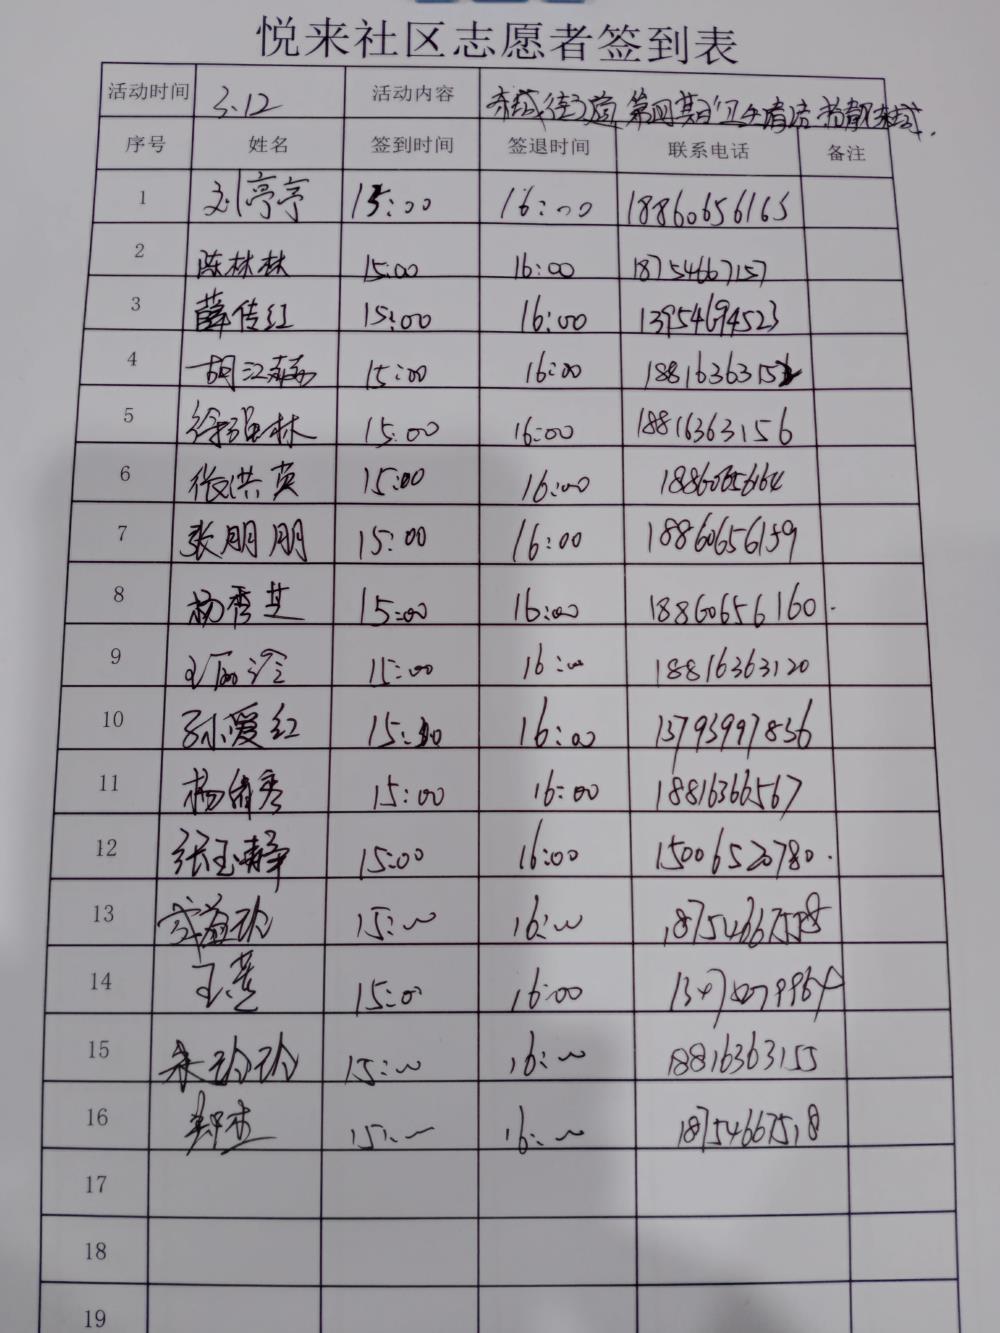 悦来社区志愿者签到表
活动时间 3.12 活动内容 街道 第四期 卫生清洁
序号 姓名 签到时间 签退时间 联系电话 备注
1 刘亭亭 15:00 16:00 18860656163
2 陈林林 15:00 16:00 18754667157
3 薛传红 15:00 16:00 13954694523
4 15:00 16:00
5 徐强林 15:00 16:00 18816363156
6 张洪英 15:00 16:00 18860656164
7 张朋朋 15:00 16:00 18860656159
8 杨秀芝 15:00 16:00 18860656160.
9 15:00 16:00 18816363120
10 孙爱红 15:00 16:00 13793997836
11 15:00 16:00 18816366567
12 张玉静 15:00 16:00 15006520780.
13 15:00 16:00
14 15:00 16:00
15 朱玲玲 15:00 16:00 18816363155
16 15:00 16:00 18754667518
17
18
19